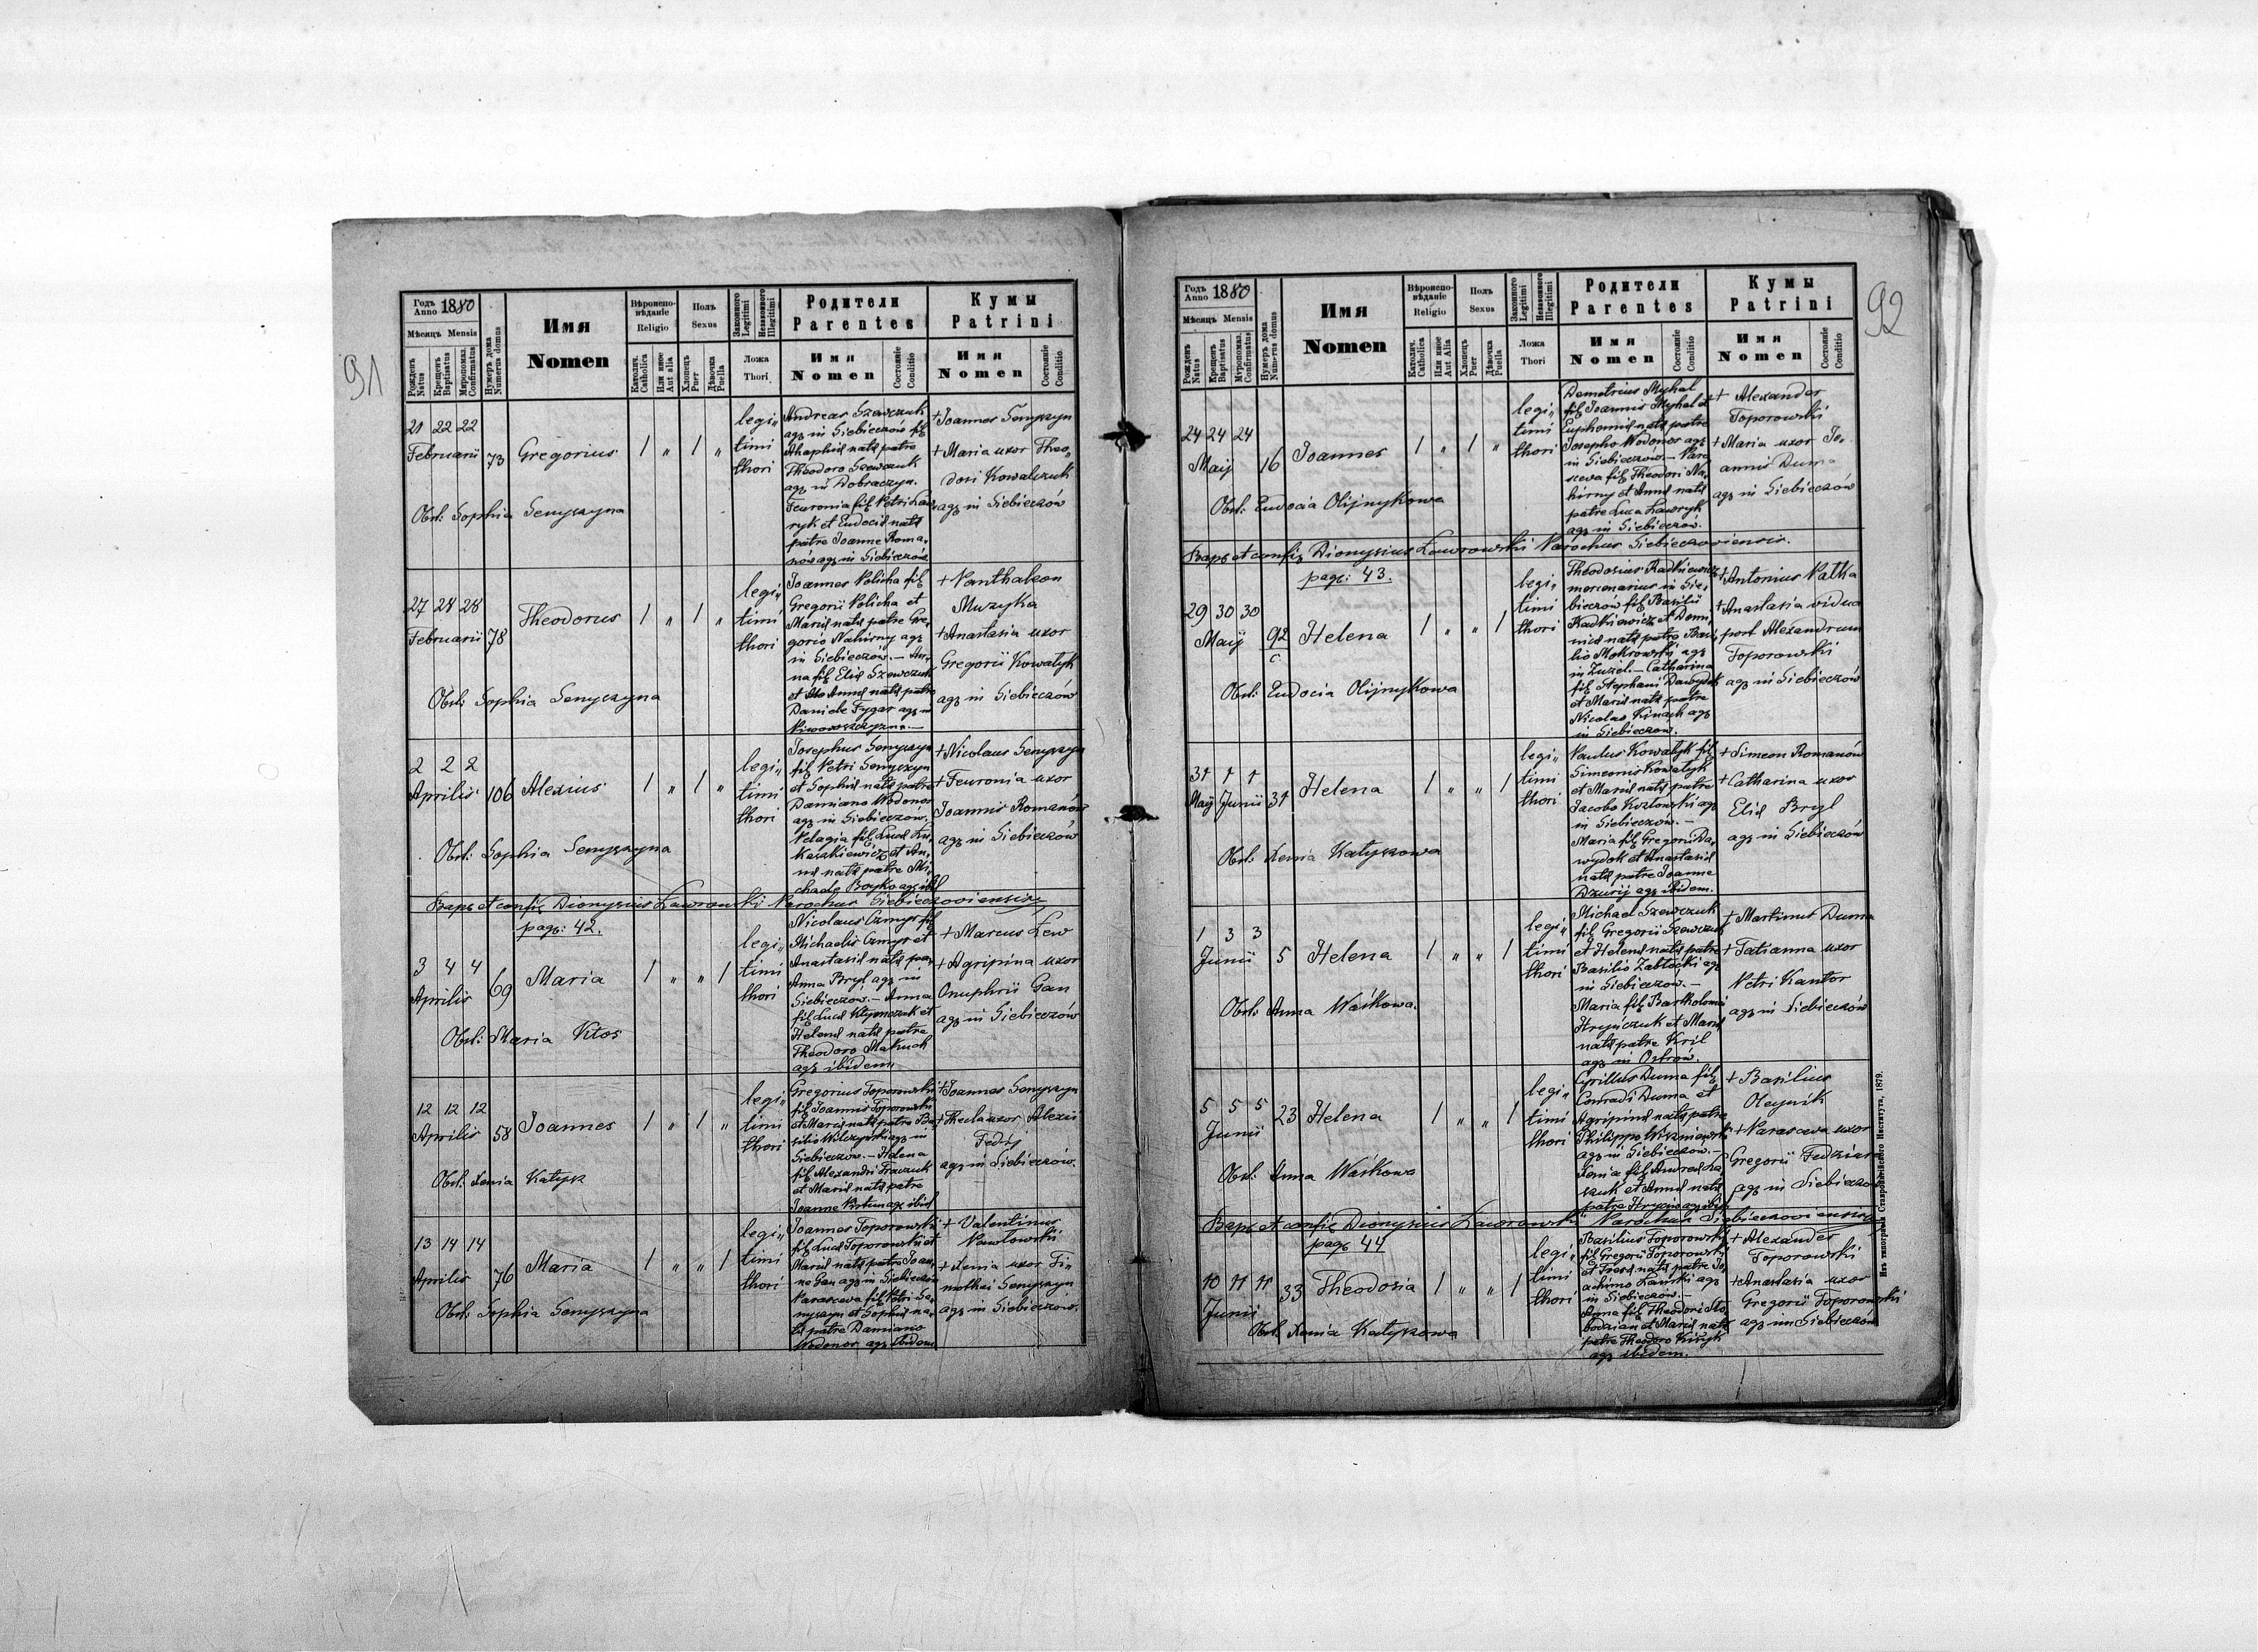 91
Годъ Anno 1880
Мѣсяцъ Mensis
Рожденъ Natus
Крещенъ Baptisatus
Мѵропомаз. Confirmatus
Нумеръ дома Numerus domus
Имя
Nomen
Вѣроисповѣданіе
Religio
Католич. Catholica
Или иное Aut alia
Полъ
Sexus
Хлопецъ Puer
Дѣвочка Puella
Законного Legitimi
Незаконного Illegitimi
Ложа
Thori
Родители
Parentes
Имя
Nomen
Состояніе Conditio
Кумы
Patrini
Имя
Nomen
Состояніе Conditio
21 22 22
Februarii 73 Gregorius 1 „ 1 „
legi„
timi
thori
Andreas Szewczuk
agr in Siebieczów fil
Ahaphiæ natæ patre
Theodoro Szewczuk
agr in Dobraczyn.
Feuronia fil Petri Law„
ryk et Eudociæ natæ
patre Joanne Roma„
nów agr in Siebieczów
+ Joannes Senyszyn
+ Maria uxor Theo„
dosi Kowalczuk
agr in Siebieczów
Obst: Sophia Senyszyna
27 28 28
Februarii 78 Theodorus 1 „ 1 „
legi„
timi
thori
Joannes Policha fil
Gregorii Policha et
Mariæ natæ patre Gre„
gorio Nahirny agr
in Siebieczów. — An„
na fil Eliæ Szewczuk
et Annæ natæ patre
Daniele Fygar agr in
+ Panthaleon
Muzyka
+ Anastasia uxor
Gregorii Kowalyk
agr in Siebieczów
Obst: Sophia Senyszyna
2 2 2
Aprilis 106 Alexius 1 „ 1 „
legi„
timi
thori
Josephus Senyszyn
fil Petri Senyszyn
et Sophiæ natæ patre
Damiano Wodonos
agr in Siebieczów.
Pelagia fil Lucæ Lu„
kaszkiewicz et An„
næ natæ patre Mi„
chaele Boyko agr ibid
+ Nicolaus Senyszyn
+ Feuronia uxor
Joannis Romanów
agr in Siebieczów
Obst: Sophia Senyszyna
Bapt et confir Dionysius Lawrowski Parochus Siebieczoviensis
pag: 42.
3 4 4
Aprilis 69 Maria 1 „ „ 1
legi„
timi
thori
Nicolaus Czmyr fil
Michaelis Czmyr et
Anastasiæ natæ pa„
Anna Bryl agr in
Siebieczów. — Anna
fil Lucæ Klymczuk et
Helenæ natæ patre
Theodoro Makuch
agr ibidem
+ Marcus Lew
+ Agripina uxor
Onuphrii Gan
agr in Siebieczów
Obst: Maria Kłos
12 12 12
Aprilis 58 Joannes 1 „ 1 „
legi„
timi
thori
Gregorius Toporowski
fil Joannis Toporowski
et Mariæ natæ patre Ba„
silio Wilczynski agr in
Siebieczów. — Helena
fil Alexandri Fraczuk
et Mariæ natæ patre
+ Joannes Senyszyn
+ Thecla uxor Alexii
agr in Siebieczów.
Obst: Xenia Katysz
13 14 14
Aprilis 76 Maria 1 „ „ 1
legi„
timi
thori
Joannes Toporowski
fil Lucæ Toporowski et
Mariæ natæ patre Joan„
ne Gan agr in Siebieczów
Parasceva fil Petri Se„
nyszyn et Sophiæ na„
tæ patre Damiano
Wodonos agr ibidem
+ Valentinus
Pawłowski
+ Xenia uxor Ti„
mothei Senyszyn
agr in Siebieczów.
Obst: Sophia Senyszyna
92
Годъ Anno 1880
Мѣсяцъ Mensis
Рожденъ Natus
Крещенъ Baptisatus
Мѵропомаз. Confirmatus
Нумеръ дома Num-rus domus
Имя
Nomen
Вѣроисповѣданіе
Religio
Католич. Catholica
Или иное Aut Alia
Полъ
Sexus
Хлопецъ Puer
Дѣвочка Puella
Законного Legitimi
Незаконного Illegitimi
Ложа
Thori
Родители
Parentes
Имя
Nomen
Состояніе Conditio
Кумы
Patrini
Имя
Nomen
Состояніе Conditio
24 24 24
Maij 16 Joannes 1 „ 1 „
legi„
timi
thori
Demetrius Myhal
fil Joannis Myhal et
Euphemiæ natæ patre
Josepho Wodonos agr
in Siebieczów. — Para
sceva fil Theodori Na„
hirny et Annæ natæ
patre Luca Lawryk
agr in Siebieczów.
+ Alexander
Toporowski
+ Maria uxor Jo„
annis Duma
agr in Siebieczów
Obst: Eudocia Olijnykowa
Bapt et confir Dionysius Lawrowski Parochus Siebieczoviensis.
pag: 43.
29 30 30
Maij 92/c Helena 1 „ „ 1
legi„
timi
thori
Theodosius Radkiewicz
mercenarius in Sie„
bieczów fil Basilii
Radkiewicz et Dom„
nicæ natæ patre Basi„
lio Mokrowski agr
in Zuzel. — Catharina
fil Stephani Dawydok
et Mariæ natæ patre
Nicolao Kinach agr
in Siebieczów.
+ Antonius Patka
+ Anastasia vidua
post Alexandrum
Toporowski
agr in Siebieczów
Obst: Eudocia Olijnykowa
31 1 1
Maij Junii 31 Helena 1 „ „ 1
legi„
timi
thori
Paulus Kowalyk fil
Simeonis Kowalyk
et Mariæ natæ patre
Jacobo Kozłowski agr
in Siebieczów. —
Maria fil Gregorii Da„
wydok et Anastasiæ
natæ patre Joanne
Dzurij agr ibidem.
+ Simeon Romanów
+ Catharina uxor
Eliæ Bryl
agr in Siebieczów
Obst: Xenia Katyszowa
1 3 3
Junii 5 Helena 1 „ „ 1
legi„
timi
thori
Michael Szewczuk
fil Gregorii Szewczuk
et Helenæ natæ patre
Basilio Zabłocki agr
in Siebieczów. —
Maria fil Bartholomei
Hryńczuk et Mariæ
natæ patre Kril
agr in Ostrów.
+ Martinus Duma
+ Tatianna uxor
Petri Kantor
agr in Siebieczów
Obst: Anna Waśkowa.
5 5 5
Junii 23 Helena 1 „ „ 1
legi„
timi
thori
Cyrillus Duma fil
Conradi Duma et
Agripinæ natæ patre
Philippo Wiszniewski
agr in Siebieczów. —
+ Basilius
Oleynik
+ Parasceva uxor
Gregorii
agr in Siebieczów
Obst: Anna Waśkowa
Bapt et confir Dionysius Lawrowski Parochus Siebieczoviensis
pag 44
10 11 11
Junii 33 Theodosia 1 „ „ 1
legi„
timi
thori
Basilius Toporowski
fil Gregorii Toporowski
agr in Siebieczów. —
Anna fil Theodori
et Mariæ natæ
patre Theodoro
agr ibidem.
+ Alexander
Toporowski
+ Anastasia uxor
Gregorii Toporowski
agr in Siebieczów
Obst: Xenia Katyszowa
Изъ типографіи Ставропигійского Института, 1879.